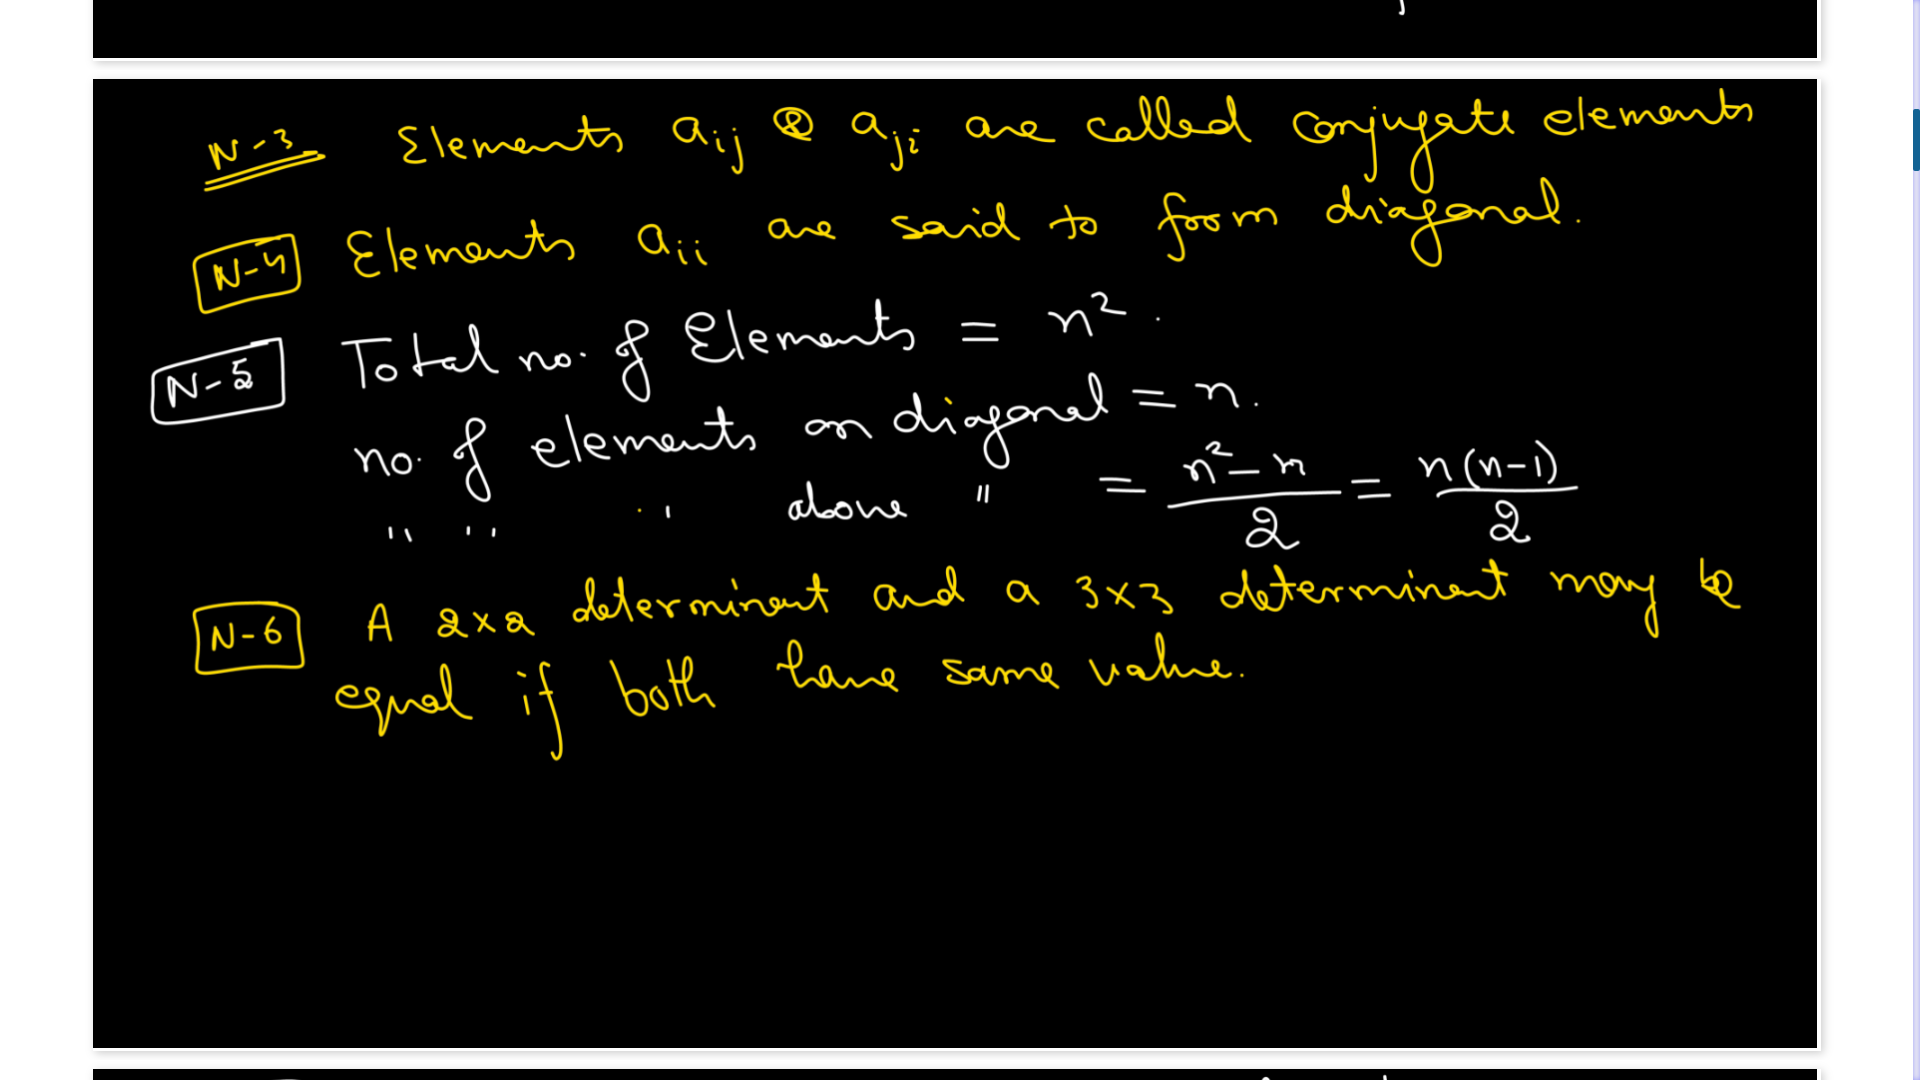 N-3 Elements aij & aji are called conjugate elements
N-4 Elements aii are said to form diagonal.
N-5 Total no. of Elements = n².
no. of elements on diagonal = n.
" " " above " = (n² - n)/2 = n(n-1)/2
N-6 A 2x2 determinant and a 3x3 determinant may be
equal if both have same value.